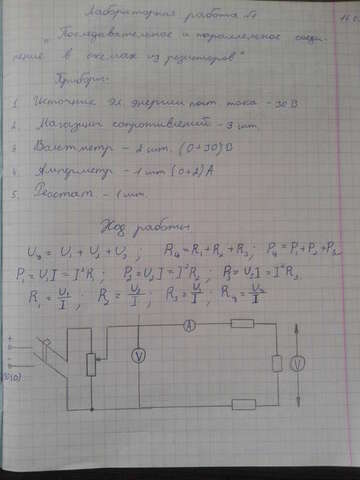 Лабораторная работа №
"Последавательное и параллельное соеди-
нение в схемах из резисторов"
Приборы:
1. Источник эл. энергии пост. тока - 30 В
2. Магазин сопротивлений - 3 шт.
3. Вольтметр - 2 шт. (0÷30) В
4. Амперметр - 1 шт (0÷2) А
5. Реостат - 1 шт.
Ход работы
= U₁ + U₂ + U₃ ; = R₁ + R₂ + R₃ ; = P₁ + P₂ + P₃
P₁ = U₁I = I²R₁ ; P₂ = U₂I = I²R₂ ; P₃ = U₃I = I²R₃
R₁ = U₁/I ; R₂ = U₂/I ; R₃ = U₃/I ;
A
+
-
V
V